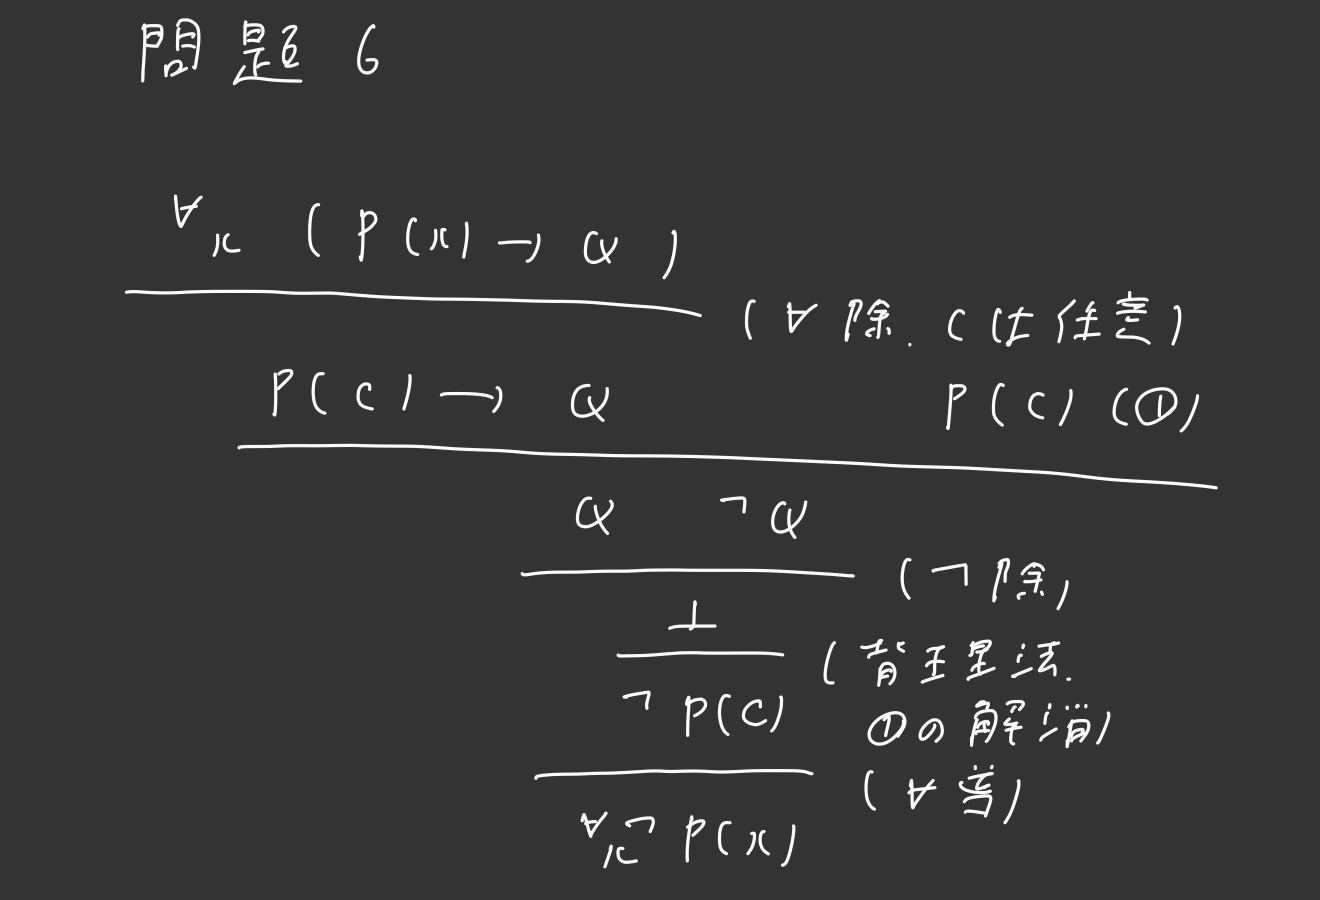 問題 6
∀x (P(x) → Q)
(∀除. cは任意)
P(c) → Q P(c) (①)
Q ¬Q
(¬除)
⊥
(背理法.
¬P(c) ①の解消)
(∀導)
∀x¬P(x)